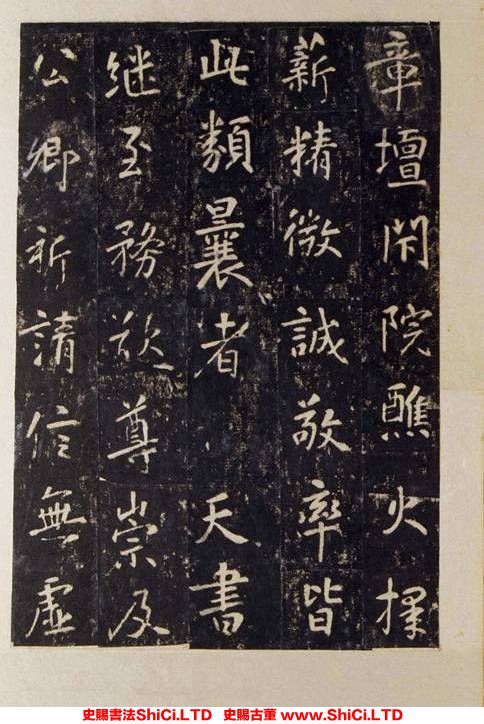 章壇閑院醮火㩁
薪精微誠敬率皆
此類曩者天書
繼至務㪫尊崇及
公卿祈請信無虛
史賜書法ShiCi.LTD 史賜古董 www.ShiCi.LTD